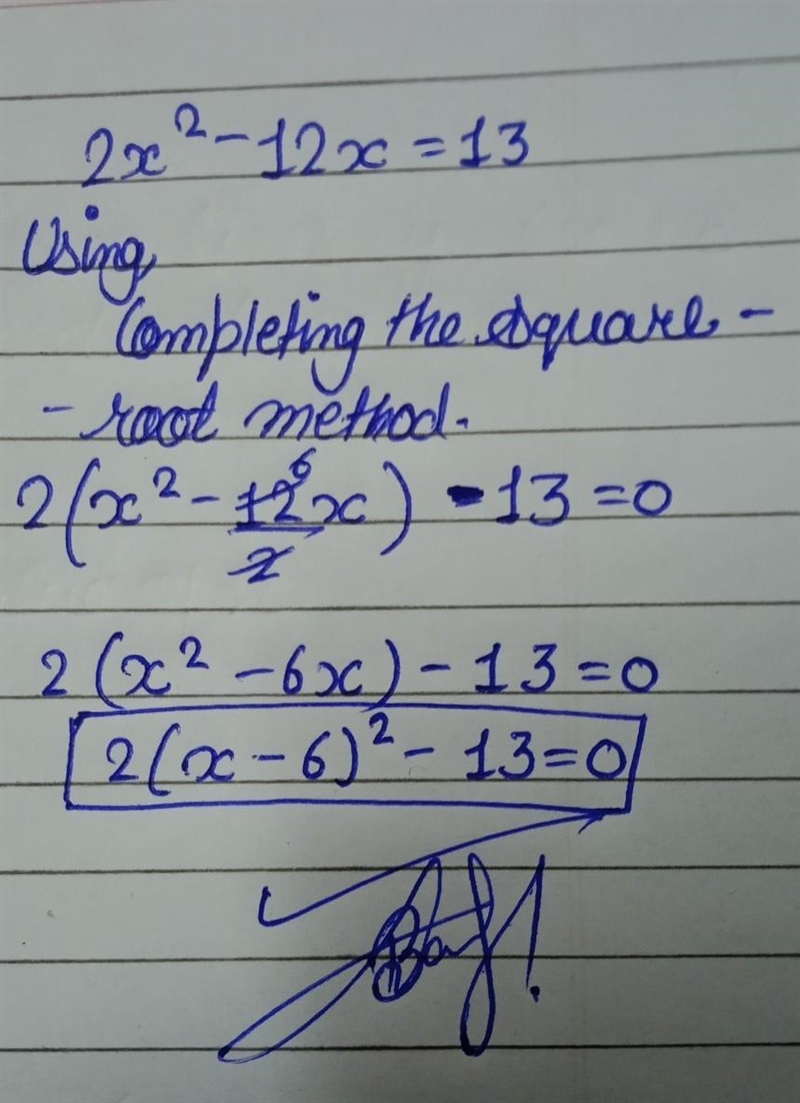 2x² - 12x = 13
Using
Completing the square -
- root method.
2(x² - 12⁶x/2) - 13 = 0
2(x² - 6x) - 13 = 0
2(x - 6)² - 13 = 0